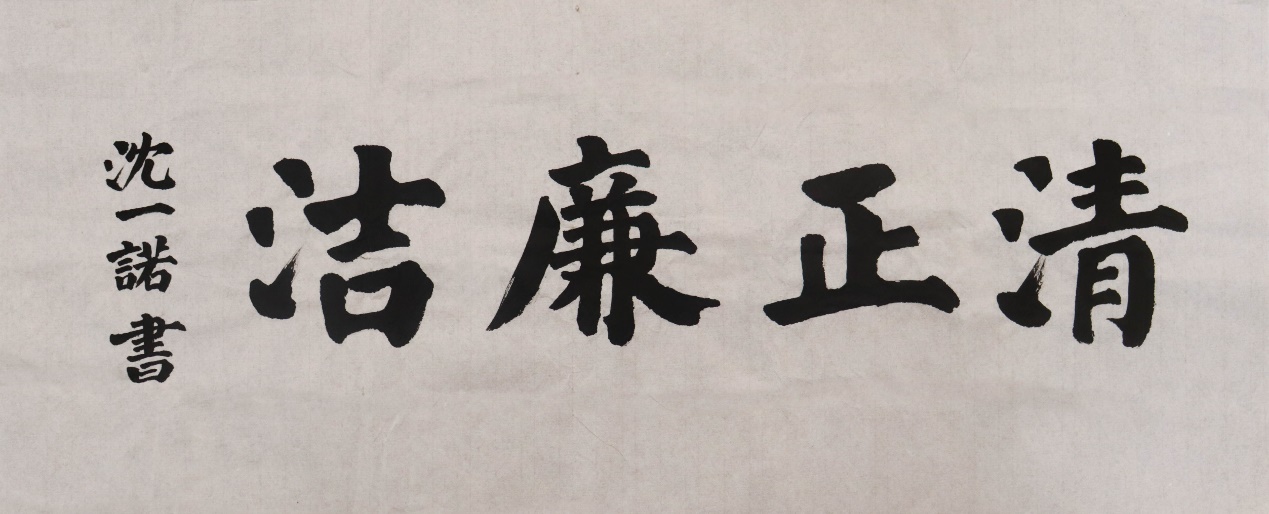 清正廉洁
沈一諾書